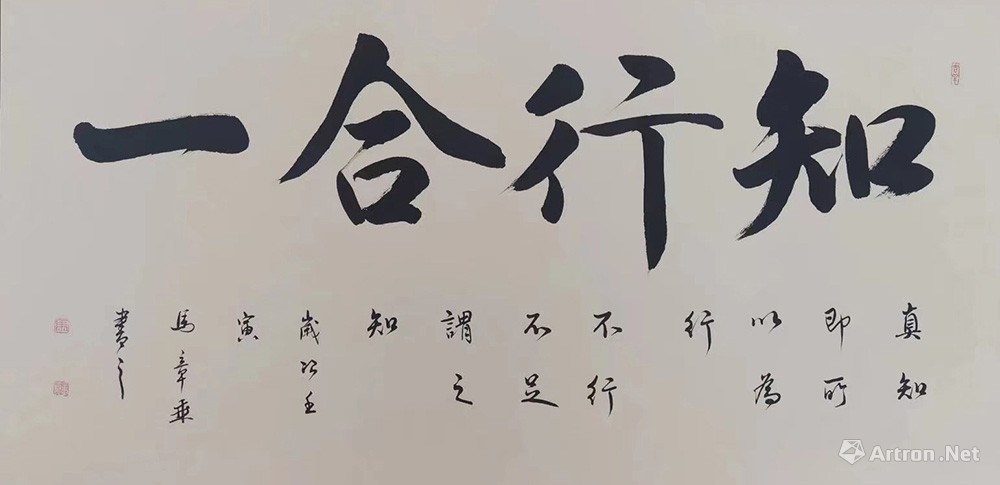 知行合一
真知
即所
以為
行
不行
不足
謂之
知
歲次壬
寅
馬章乘
書之
Artron.Net